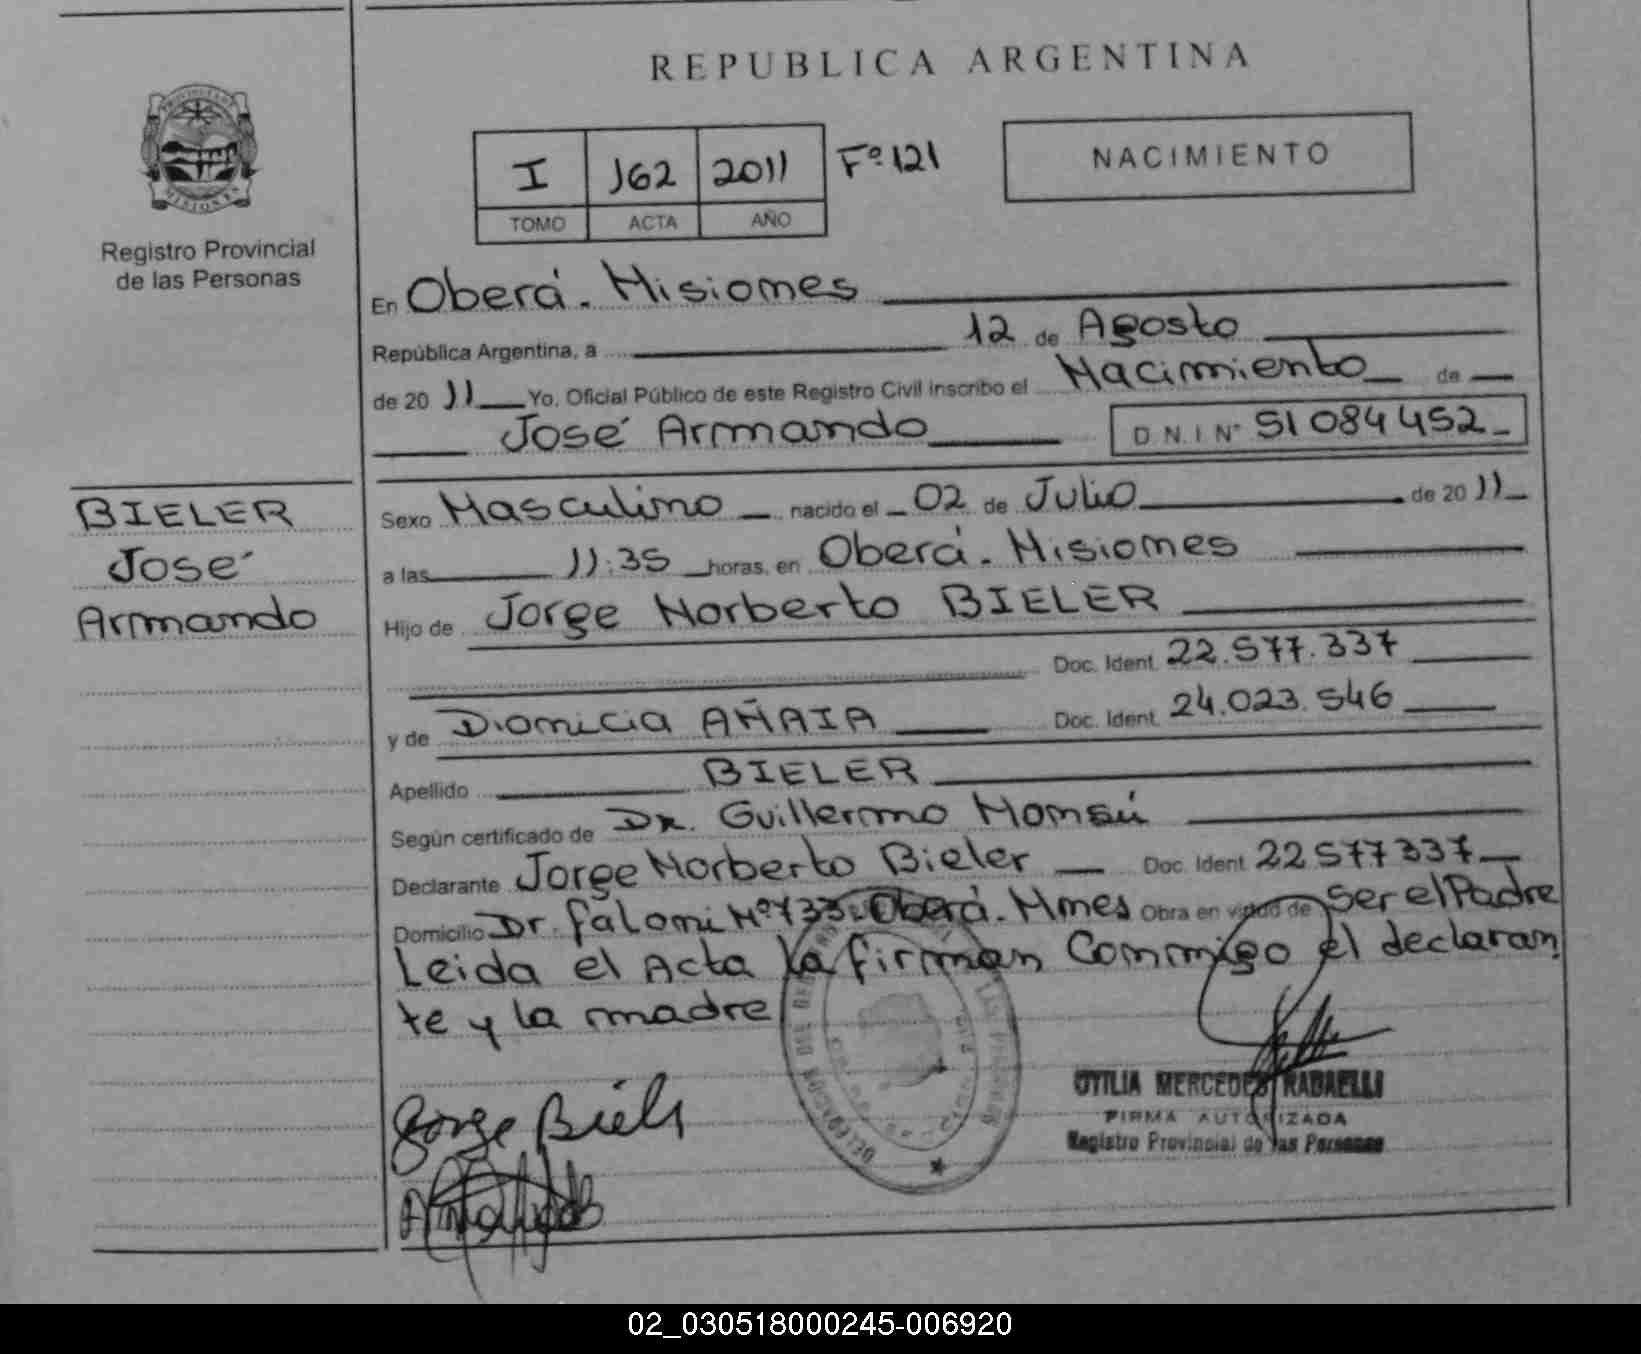 REPUBLICA ARGENTINA
PROVINCIA DE
MISIONES
Registro Provincial
de las Personas
I 162 2011 Fº 121
TOMO ACTA AÑO
NACIMIENTO
En Oberá. Misiones
República Argentina, a 12 de Agosto
de 2011 Yo, Oficial Público de este Registro Civil inscribo el Nacimiento de
José Armando D N I Nº 51084452
BIELER
José
Armando
Sexo Masculino nacido el 02 de Julio de 2011
a las 11:35 horas, en Oberá. Misiones
Hijo de Jorge Norberto BIELER
Doc. Ident. 22.577.337
y de Dionicia Doc. Ident. 24.023.546
Apellido BIELER
Según certificado de Dr. Guillermo
Declarante Jorge Norberto Bieler Doc. Ident. 22577337
Domicilio Dr. Nº 733. Oberá. Mnes Obra en virtud de Ser el Padre
Leida el Acta la firman Conmigo el declaran
te y la madre
Jorge Biele
OTILIA MERCEDES RADAELLI
FIRMA AUTORIZADA
Registro Provincial de las Personas
02_030518000245-006920